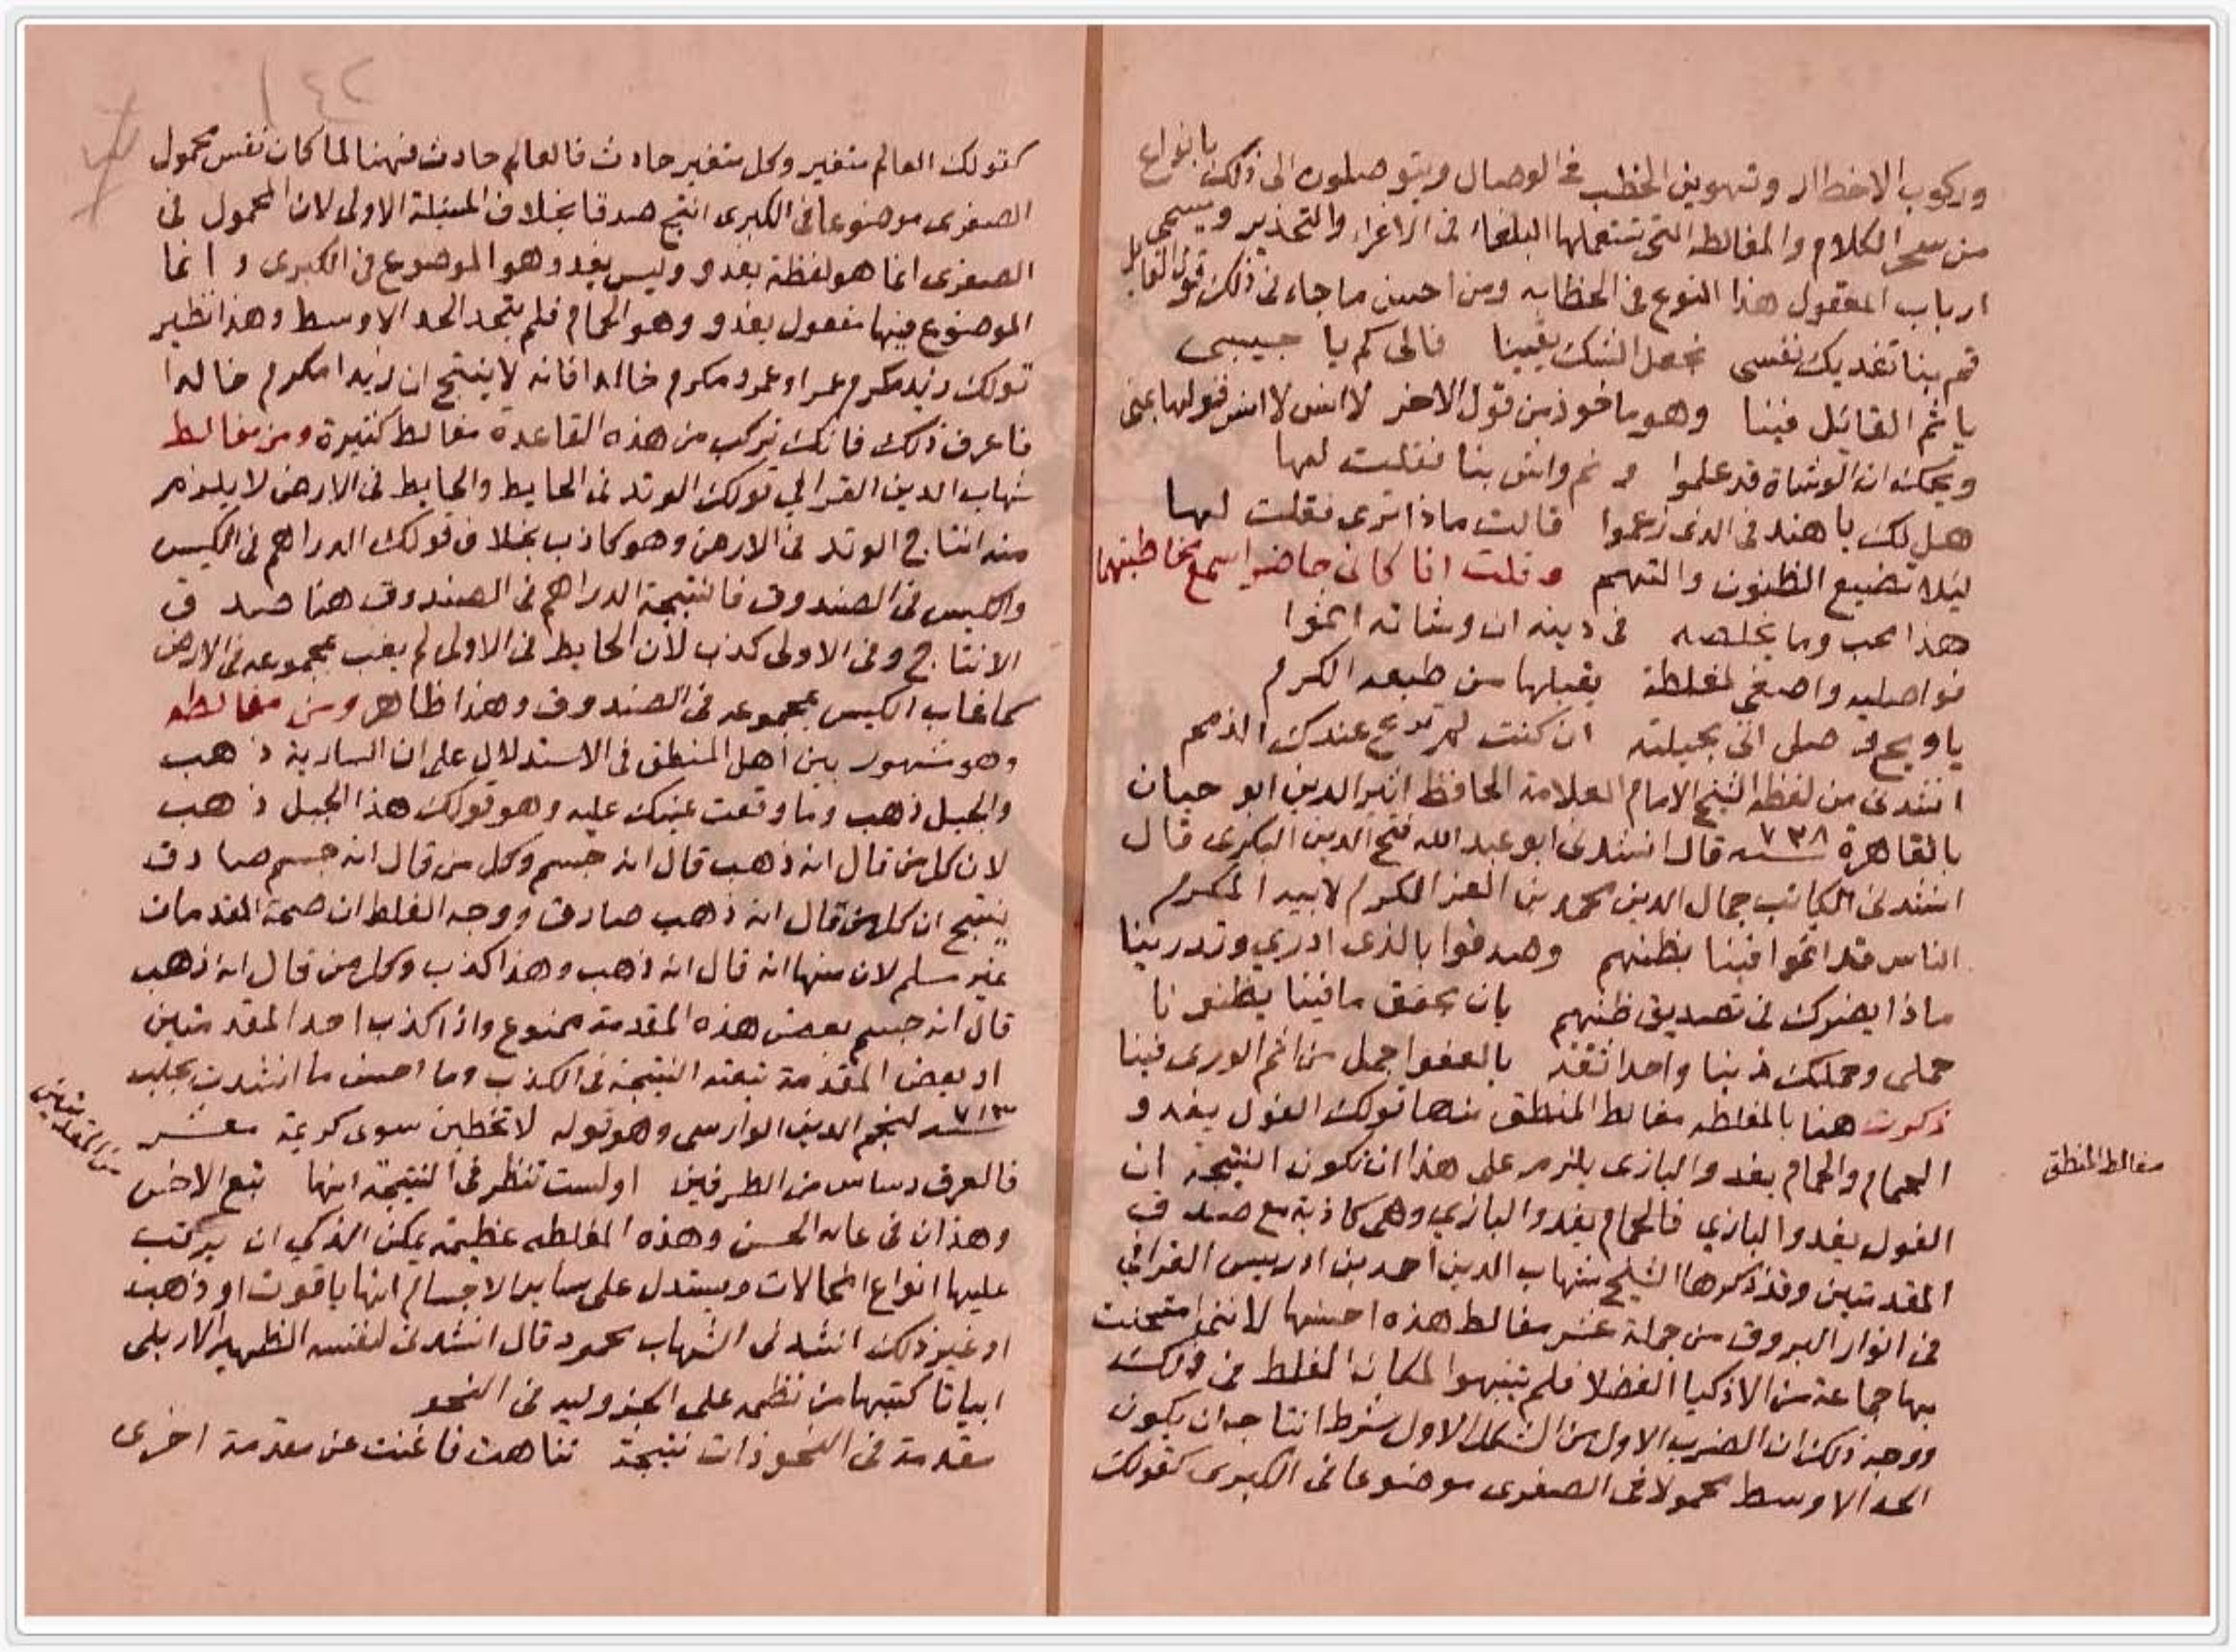 وركوب الاخطار وتهوين الخطب فى الوصال ويتوصلون الى ذلك بانواع
من سحر الكلام والمغالطه التى تستعملها البلغاء فى الاغراء والتحذير ويسمى
ارباب المعقول هذا النوع فى الخطابه ومن احسن ما جاء فى ذلك قول القايل
قم بنا تفديك نفسى نجعل الشك يقينا فالى كم يا حبيبى
ياثم القائل فينا وهو ماخوذ من قول الاخر لا انس لا انس قولها بمنى
ويحك ان الوشاة قد علموا و نم واش بنا فقلت لها
هل لك يا هند فى الذى زعموا قالت ماذا ترى فقلت لها
ليلا تضيع الظنون والتهم وقلت انا كانى حاضر اسمع مخاطبتهما
هذا محب وما يخلصه فى دينه ان وشاته اثموا
فواصليه واصغى لمغلطة يقبلها من طبعه الكرم
يا ويح وصلى اتى بحيلته ان كنت لم ترع عندك الذمم
انشدنى من لفظه الشيخ الامام العلامة الحافظ اثير الدين ابو حيان
بالقاهرة سنه ٧٣٨ قال انشدنى ابو عبد الله فتح الدين البكرى قال
انشدنى الكاتب جمال الدين محمد بن العز المكرم لابيه المكرم
الناس قد اثموا فينا بظنهم وصدقوا بالذى ادري وتدرينا
ماذا يضرك فى تصديق ظنهم بان نحقق ما فينا يظنونا
حملى وحملك ذنبا واحدا ثقة بالعفو اجمل من اثم الورى فينا
ذكرت هنا بالمغلطه مغالط المنطق منها قولك الفول يغدو
الحمام والحمام يغدو البازى يلزم على هذا ان تكون النتيجة ان
الفول يغدو البازي فالحمام يغدو البازي وهى كاذبة مع صدق
المقدمتين وقد ذكرها الشيخ شهاب الدين احمد بن ادريس القرافي
فى انوار البروق من جملة عشر مغالط هذه احسنها لاننى امتحنت
بها جماعة من الاذكيا الفضلا فلم يتنبهوا لمكان الغلط فى ذلك
ووجه ذلك ان الضرب الاول من الشكل الاول شرط انتاجه ان يكون
الحد الاوسط محمولا فى الصغرى موضوعا فى الكبرى كقولك
مغالط المنطق
١٤٢
كقولك العالم متغير وكل متغير حادث فالعالم حادث فهنا لما كان نفس محمول
الصغرى موضوعا فى الكبرى انتج صدقا بخلاف المسئلة الاولى لان المحمول فى
الصغرى انما هو لفظة يغدو وليس يغدو هو الموضوع فى الكبرى و انما
الموضوع فيها مفعول يغدو وهو الحمام فلم يتحد الحد الاوسط وهذا نظير
قولك زيد مكرم عمرا وعمرو مكرم خالدا فانه لا ينتج ان زيدا مكرم خالدا
فاعرف ذلك فانك تركب من هذه القاعدة مغالط كثيرة ومن مغالط
شهاب الدين القرافي قولك الوتد فى الحايط والحايط فى الارض لا يلزم
منه انتاج الوتد فى الارض وهو كاذب بخلاف قولك الدراهم فى الكيس
والكيس فى الصندوق فالنتيجة الدراهم فى الصندوق هنا صدق
الانتاج وفى الاولى كذب لان الحايط فى الاولى لم يغب بمجموعه فى الارض
كما غاب الكيس بمجموعه فى الصندوق وهذا ظاهر ومن مغالطه
وهو مشهور بين اهل المنطق فى الاستدلال على ان السارية ذهب
والجبل ذهب وما وقعت عينك عليه وهو قولك هذا الجبل ذهب
لان كل من قال انه ذهب قال انه جسم وكل من قال انه جسم صادق
ينتج ان كل من قال انه ذهب صادق ووجه الغلط ان صحة المقدمات
غير مسلم لان منها انه قال انه ذهب وهذا كذب وكل من قال انه ذهب
قال انه جسم بعض هذه المقدمة ممنوع واذا كذب احد المقدمتين
او بعض المقدمة تبعته النتيجة فى الكذب وما احسن ما انشدت بحلب
سنه ٧١٣ لنجم الدين الوارسى وهو قوله لا تخطبن سوى كريمة معشر
من المقدمتين
فالعرق دساس من الطرفين اولست تنظر فى النتيجة انها تبع الاخس
وهذان فى غاية الحسن وهذه المغلطه عظيمة يمكن الذكي ان يركب
عليها انواع المحالات ويستدل على ساير الاجسام انها ياقوت او ذهب
او غير ذلك انشدنى الشهاب محمود قال انشدنى لنفسه الظهير الاربلى
ابياتا كتبها من نظمه على الجزوليه فى النحو
مقدمة فى النحو ذات نتيجة تناهت فاغنت عن مقدمة اخرى